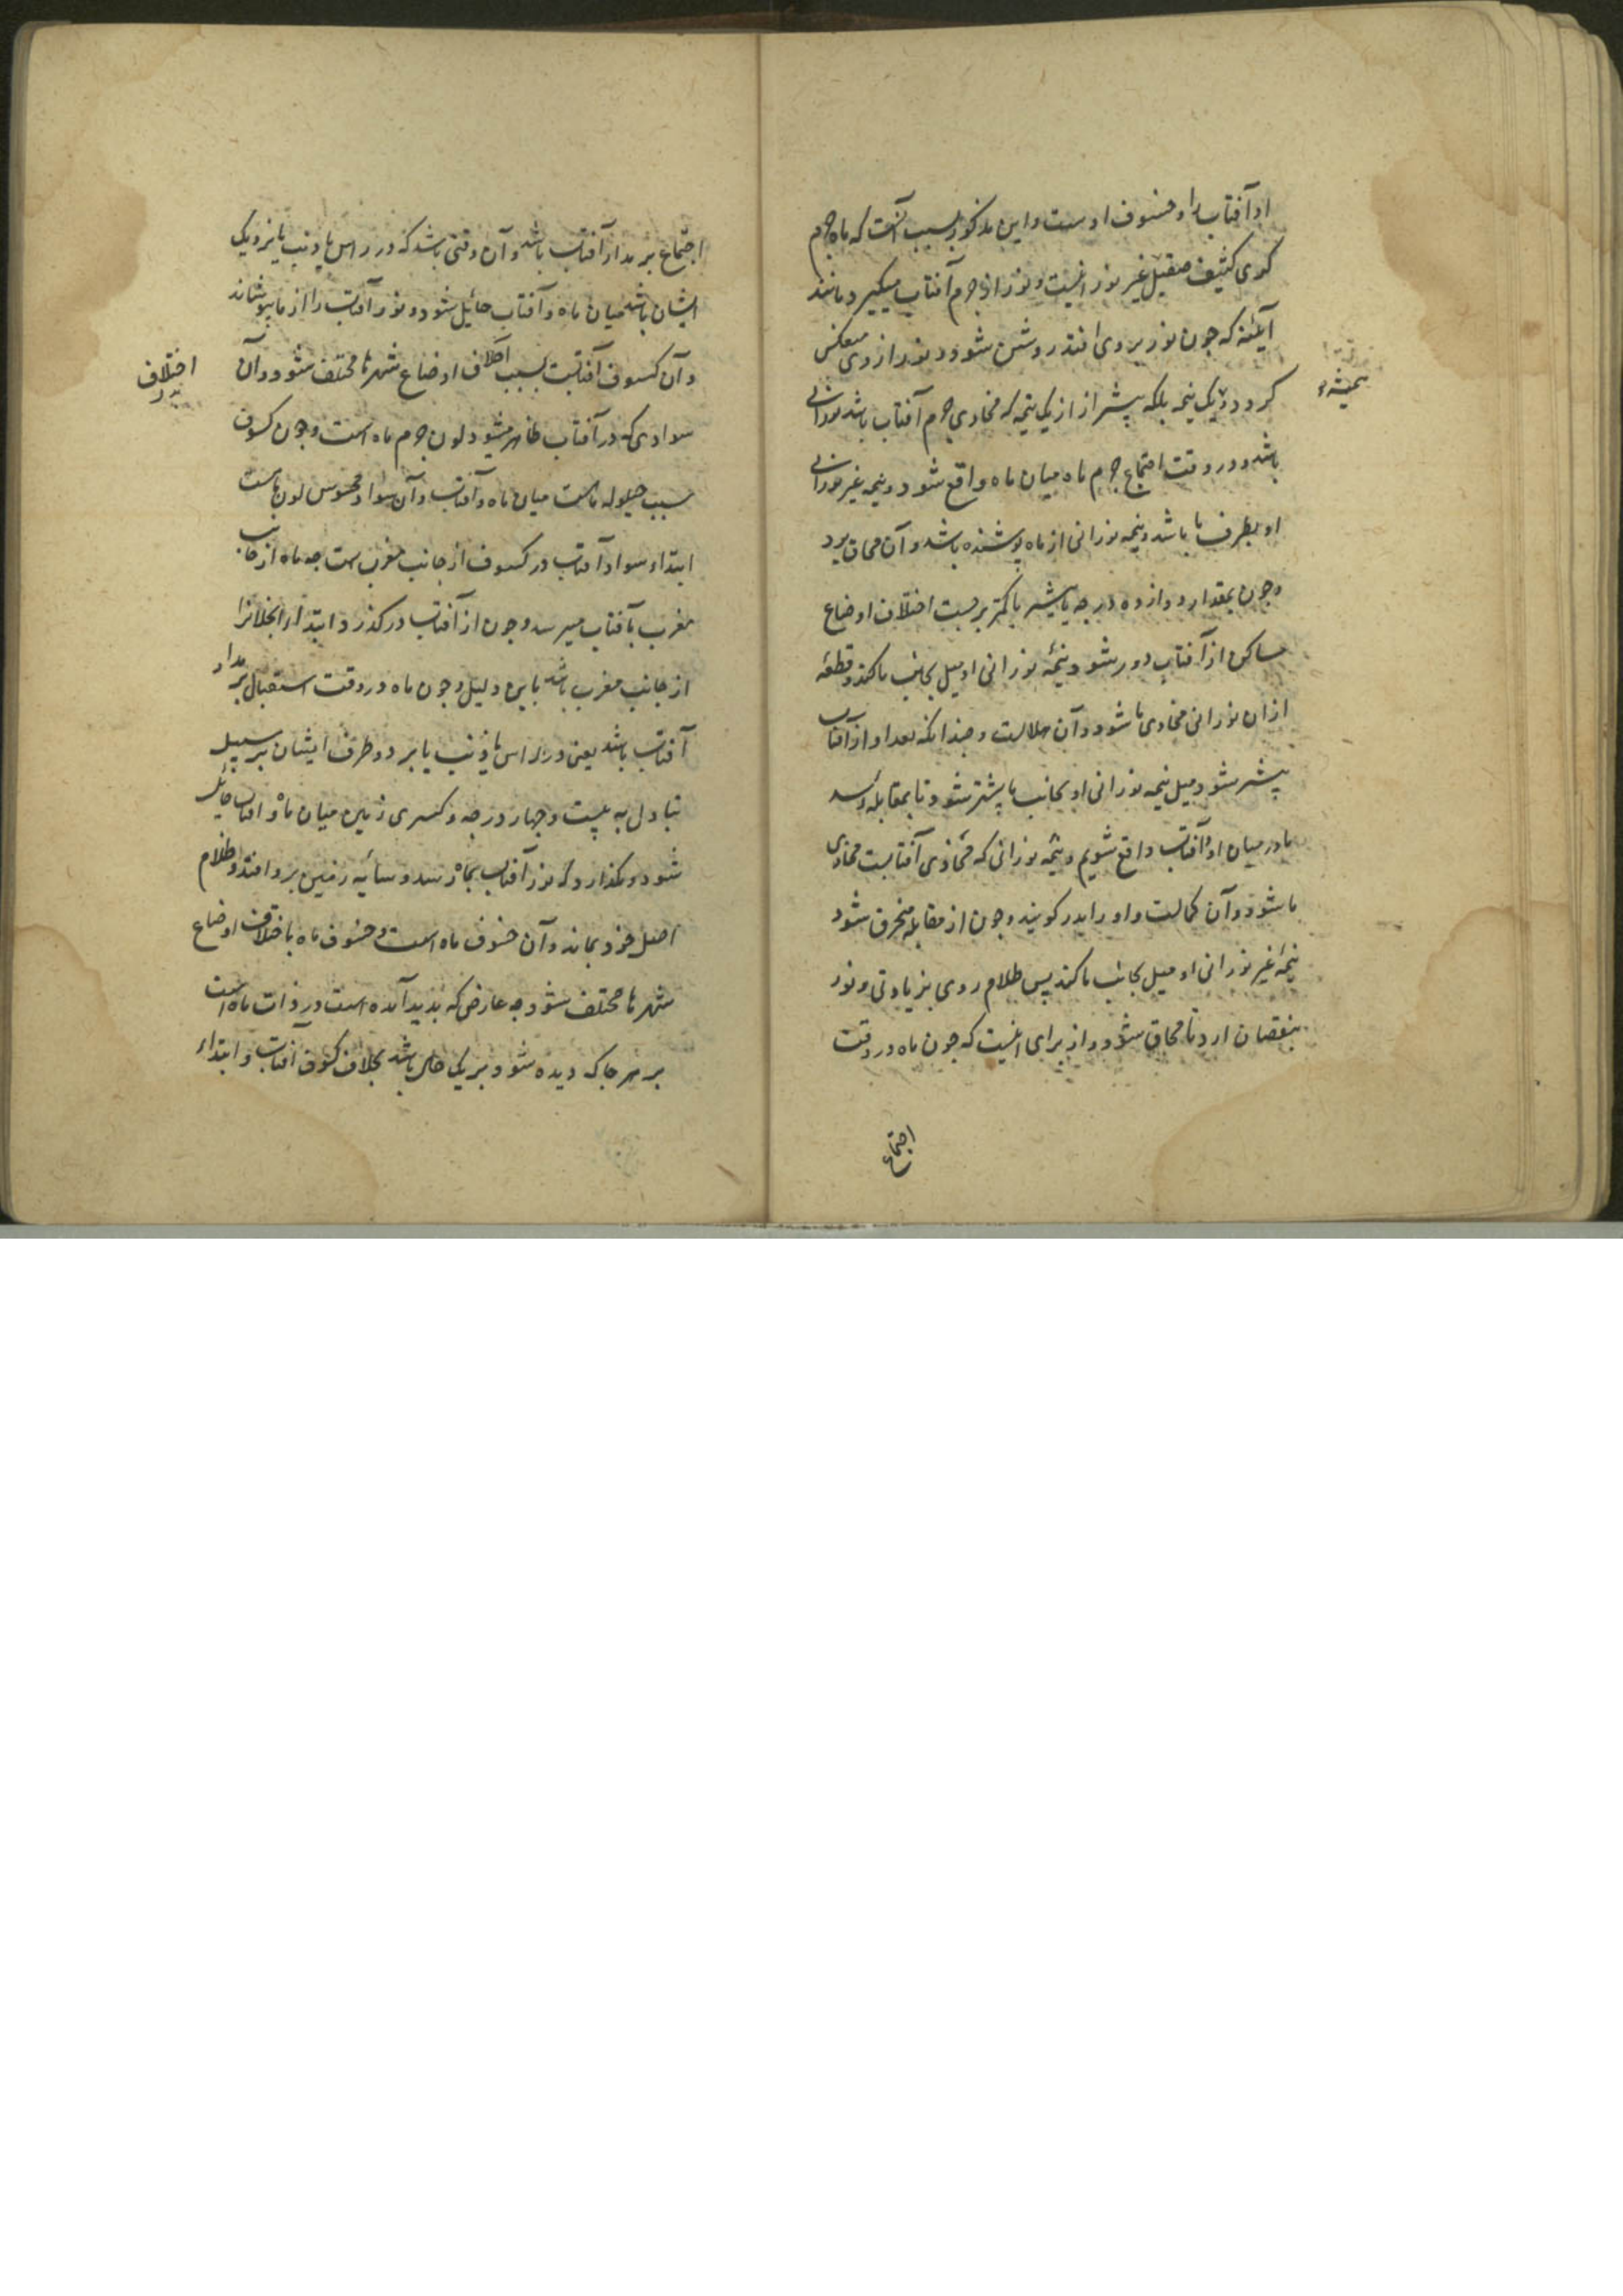 او آفتاب را و خسوف اوست و این مذکور بسبب آنست که ماه جرم
کری کثیف صقیل غیر نورانیست و نور از جرم آفتاب میگیرد مانند
آیئنه که چون نور بر وی افتد روشن شود و نور از وی منعکس
کردد و یک نیمه بلکه پیشتر از از یک نیمه که محاذی جرم آفتاب باشد نورانی
همیشه
باشد و در وقت اجتماع جرم ماه میان ماه واقع شود و نیمه غیر نورانی
او بطرف ما باشد و نیمه نورانی از ماه پوشنده باشد و آن محاق بود
و چون بمقدار دوازده درجه یا بیشتر یا کمتر بر حسب اختلاف اوضاع
مساکن از آفتاب دور شود نیمه نورانی او میل بجانب ما کند و قطعه
ازان نورانی محاذی ما شود و آن هلالست و چندانکه بعد او از آفتاب
پیشتر شود میل نیمه نورانی او بجانب ما پیشتر شود تا بمقابله رسد
ما در میان او و آفتاب واقع شویم و نیمه نورانی که محاذی آفتابست محاذی
ما شود و آن کمالست و او را بدر کویند و چون از مقابله منحرف شود
نیمهٔ غیر نورانی او میل بجانب ما کند پس ظلام روی بزیادتی و نور
بنقصان ارد تا محاق شود و از برای اینست که چون ماه در وقت
اجتماع
اجتماع بر مدار آفتاب باشد و آن وقتی باشد که در راس یا ذنب یا نزدیک
ایشان باشد میان ماه و آفتاب حائل شود و نور آفتاب را از ما بپوشاند
و آن کسوف آفتابست بسبب اختلاف اوضاع شهرها مختلف شود و آن
اختلاف
سوادی که در آفتاب ظاهر میشود لون جرم ماه است و چون کسوف
بسبب حیلوله ماست میان ماه و آفتاب و آن سواد محسوس لون ماست
ابتداء سواد آفتاب در کسوف از جانب مغرب ست چه ماه از جانب
مغرب بآفتاب میرسد و چون از آفتاب درکذرد ابتداء انجلا نرا
از جانب مغرب باشد باین دلیل و چون ماه در وقت استقبال بر مدار
آفتاب باشد یعنی در راس یا ذنب یا بر دو طرف ایشان بر سبیل
تبادل به بیست و چهار درجه و کسری زمین میان ماه و افتاب حایل
شود و نکذارد که نور آفتاب بماه رسد و سایه زمین برو افتد و ظلام
اصل خود بماند و آن خسوف ماه است و خسوف ماه باختلاف اوضاع
شهرها مختلف نشود چه عارض که پدید آمده است در ذات ماه است
بر هر جا که دیده شود بر یک حال باشد بخلاف کسوف آفتاب و ابتداء